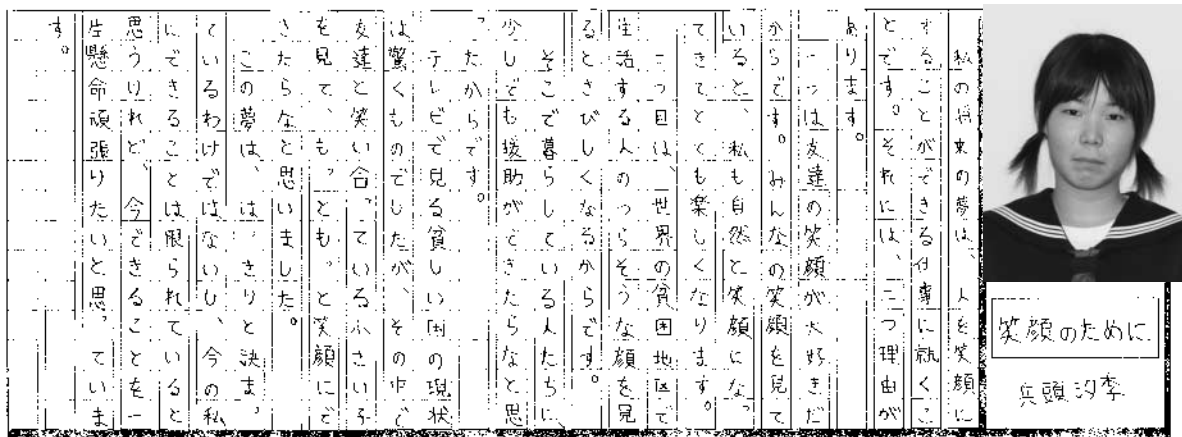 笑顔のために
兵頭汐季
私の将来の夢は、人を笑顔に
することができる仕事に就くこ
とです。それには、二つ理由が
あります。
一つは友達の笑顔が大好きだ
からです。みんなの笑顔を見て
いると、私も自然と笑顔になっ
てきてとても楽しくなります。
二つ目は、世界の貧困地区で
生活する人のつらそうな顔を見
るとさびしくなるからです。
そこで暮らしている人たちに、
少しでも援助ができたらなと思
ったからです。
テレビで見る貧しい国の現状
は驚くものでしたが、その中で
友達と笑い合っている小さい子
を見て、もっともっと笑顔にで
きたらなと思いました。
この夢は、はっきりと決まっ
ているわけではないし、今の私
にできることは限られていると
思うけれど、今できることを一
生懸命頑張りたいと思っていま
す。